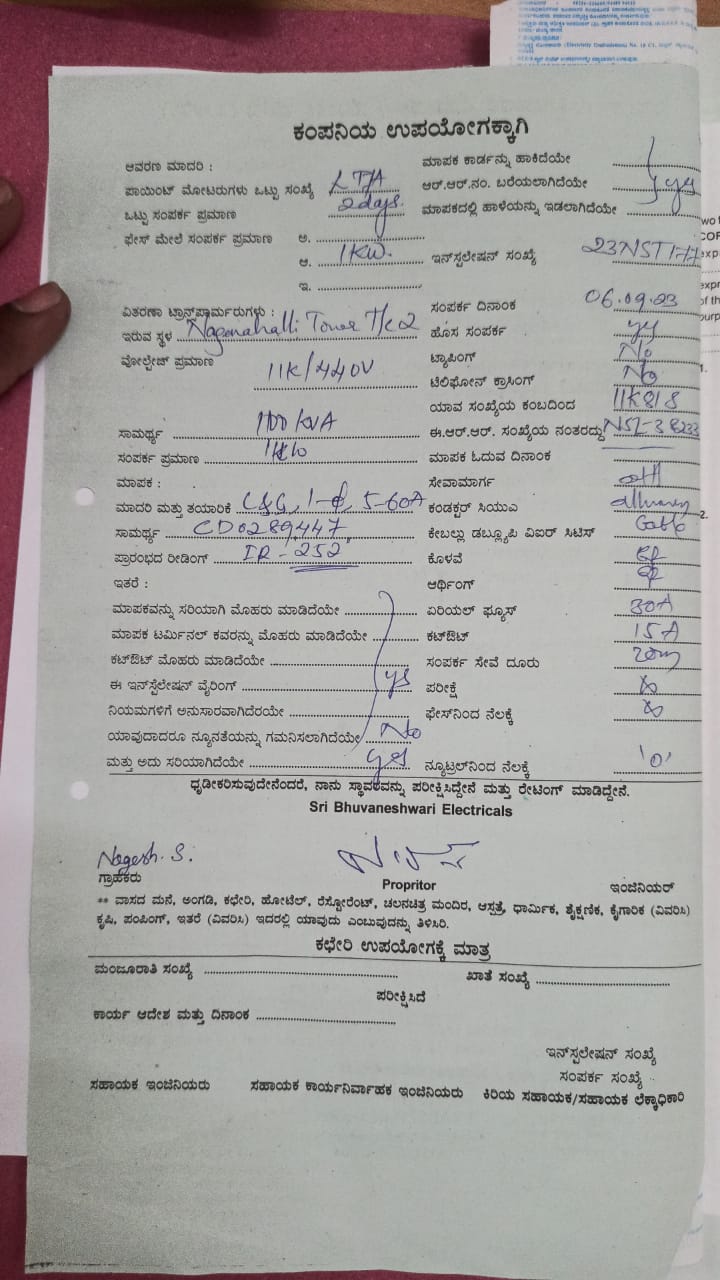 ಕಂಪನಿಯ ಉಪಯೋಗಕ್ಕಾಗಿ
ಆವರಣ ಮಾದರಿ : ಮಾಪಕ ಕಾರ್ಡನ್ನು ಹಾಕಿದೆಯೇ
ಪಾಯಿಂಟ್ ಮೋಟರುಗಳು ಒಟ್ಟು ಸಂಖ್ಯೆ ಆರ್.ಆರ್.ನಂ. ಬರೆಯಲಾಗಿದೆಯೇ yes
ಒಟ್ಟು ಸಂಪರ್ಕ ಪ್ರಮಾಣ 2 days. ಮಾಪಕದಲ್ಲಿ ಹಾಳೆಯನ್ನು ಇಡಲಾಗಿದೆಯೇ
ಫೇಸ್ ಮೇಲೆ ಸಂಪರ್ಕ ಪ್ರಮಾಣ ಅ.
ಆ. 1KW. ಇನ್‌ಸ್ಟಲೇಷನ್ ಸಂಖ್ಯೆ 23NST177
ಇ.
ವಿತರಣಾ ಟ್ರಾನ್ಸ್‌ಫಾರ್ಮರುಗಳು : ಸಂಪರ್ಕ ದಿನಾಂಕ 06.09.23
ಇರುವ ಸ್ಥಳ Naganahalli Tower T/c 2 ಹೊಸ ಸಂಪರ್ಕ yes
ವೋಲ್ಟೇಜ್ ಪ್ರಮಾಣ 11K/440V ಟ್ಯಾಪಿಂಗ್ No
ಟೆಲಿಫೋನ್ ಕ್ರಾಸಿಂಗ್ No
ಯಾವ ಸಂಖ್ಯೆಯ ಕಂಬದಿಂದ
ಸಾಮರ್ಥ್ಯ 100 kVA ಈ.ಆರ್.ಆರ್. ಸಂಖ್ಯೆಯ ನಂತರದ್ದು NSL-38233
ಸಂಪರ್ಕ ಪ್ರಮಾಣ 1KW ಮಾಪಕ ಓದುವ ದಿನಾಂಕ
ಮಾಪಕ : ಸೇವಾಮಾರ್ಗ
ಮಾದರಿ ಮತ್ತು ತಯಾರಿಕೆ 5-60A ಕಂಡಕ್ಟರ್ ಸಿಯುಎ
ಸಾಮರ್ಥ್ಯ CD0289447 ಕೇಬಲ್ಲು ಡಬ್ಲ್ಯೂಪಿ ವಿಐರ್ ಸಿಟಿಸ್ Cable
ಪ್ರಾರಂಭದ ರೀಡಿಂಗ್ IR-252 ಕೊಳವೆ
ಇತರೆ : ಆರ್ಥಿಂಗ್
ಮಾಪಕವನ್ನು ಸರಿಯಾಗಿ ಮೊಹರು ಮಾಡಿದೆಯೇ ಏರಿಯಲ್ ಫ್ಯೂಸ್ 30A
ಮಾಪಕ ಟರ್ಮಿನಲ್ ಕವರನ್ನು ಮೊಹರು ಮಾಡಿದೆಯೇ ಕಟ್‌ಔಟ್ 15A
ಕಟ್‌ಔಟ್ ಮೊಹರು ಮಾಡಿದೆಯೇ ಸಂಪರ್ಕ ಸೇವೆ ದೂರು 20m
ಈ ಇನ್‌ಸ್ಟೆಲೇಷನ್ ವೈರಿಂಗ್ yes ಪರೀಕ್ಷೆ
ನಿಯಮಗಳಿಗೆ ಅನುಸಾರವಾಗಿದೆರಯೇ ಫೇಸ್‌ನಿಂದ ನೆಲಕ್ಕೆ
ಯಾವುದಾದರೂ ನ್ಯೂನತೆಯನ್ನು ಗಮನಿಸಲಾಗಿದೆಯೇ No
ಮತ್ತು ಅದು ಸರಿಯಾಗಿದೆಯೇ yes ನ್ಯೂಟ್ರಲ್‌ನಿಂದ ನೆಲಕ್ಕೆ '0'
ಧೃಡೀಕರಿಸುವುದೇನೆಂದರೆ, ನಾನು ಸ್ಥಾವರವನ್ನು ಪರೀಕ್ಷಿಸಿದ್ದೇನೆ ಮತ್ತು ರೇಟಿಂಗ್ ಮಾಡಿದ್ದೇನೆ.
Sri Bhuvaneshwari Electricals
Nagesh. S.
ಗ್ರಾಹಕರು Propritor ಇಂಜಿನಿಯರ್
** ವಾಸದ ಮನೆ, ಅಂಗಡಿ, ಕಛೇರಿ, ಹೋಟೆಲ್, ರೆಸ್ಟೋರೆಂಟ್, ಚಲನಚಿತ್ರ ಮಂದಿರ, ಆಸ್ಪತ್ರೆ, ಧಾರ್ಮಿಕ, ಶೈಕ್ಷಣಿಕ, ಕೈಗಾರಿಕ (ವಿವರಿಸಿ)
ಕೃಷಿ, ಪಂಪಿಂಗ್, ಇತರೆ (ವಿವರಿಸಿ) ಇದರಲ್ಲಿ ಯಾವುದು ಎಂಬುವುದನ್ನು ತಿಳಿಸಿರಿ.
ಕಛೇರಿ ಉಪಯೋಗಕ್ಕೆ ಮಾತ್ರ
ಮಂಜೂರಾತಿ ಸಂಖ್ಯೆ ಖಾತೆ ಸಂಖ್ಯೆ
ಪರೀಕ್ಷಿಸಿದೆ
ಕಾರ್ಯ ಆದೇಶ ಮತ್ತು ದಿನಾಂಕ
ಇನ್‌ಸ್ಟಲೇಷನ್ ಸಂಖ್ಯೆ
ಸಂಪರ್ಕ ಸಂಖ್ಯೆ
ಸಹಾಯಕ ಇಂಜಿನಿಯರು ಸಹಾಯಕ ಕಾರ್ಯನಿರ್ವಾಹಕ ಇಂಜಿನಿಯರು ಕಿರಿಯ ಸಹಾಯಕ/ಸಹಾಯಕ ಲೆಕ್ಕಾಧಿಕಾರಿ